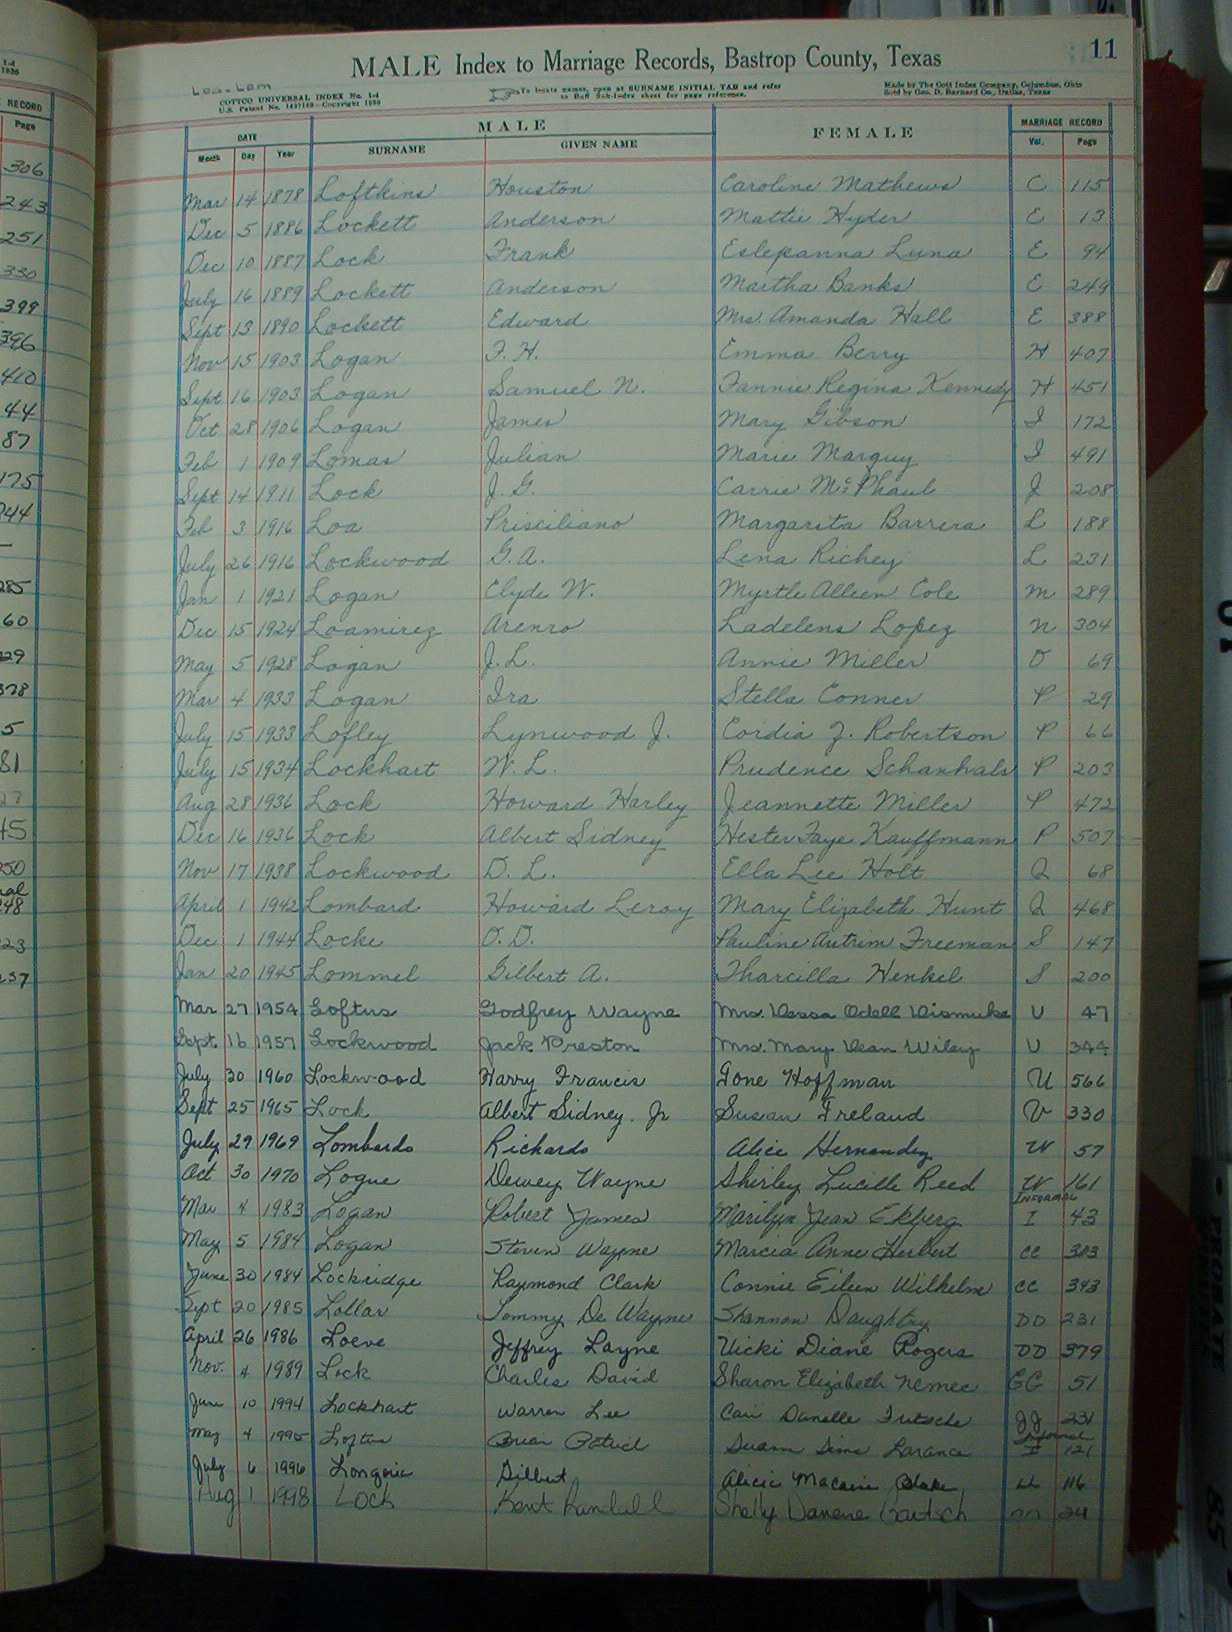 11
MALE Index to Marriage Records, Bastrop County, Texas
Loa-Lom
COTTCO UNIVERSAL INDEX No. 1-4
U.S. Patent No. 1497188—Copyright 1930
To locate names, open at SURNAME INITIAL TAB and refer
to Buff Sub-Index sheet for page reference.
Made by The Cott Index Company, Columbus, Ohio
Sold by Geo. D. Barnard Co., Dallas, Texas
DATE MALE FEMALE MARRIAGE RECORD
Month Day Year SURNAME GIVEN NAME Vol. Page
Mar 14 1878 Loftkins Houston Caroline Mathews C 115
Dec 5 1886 Lockett Anderson Mattie Hyder E 13
Dec 10 1887 Lock Frank Eslepanna Luna E 94
July 16 1889 Lockett Anderson Martha Banks E 249
Sept 13 1890 Lockett Edward Mrs. Amanda Hall E 388
Nov 15 1903 Logan F. H. Emma Berry H 407
Sept 16 1903 Logan Samuel N. Fannie Regina Kennedy H 451
Oct 28 1906 Logan James Mary Gibson I 172
Feb 1 1909 Lomas Julian Marie Marquy I 491
Sept 14 1911 Lock J. G. Carrie McPhaul J 208
Feb 3 1916 Loa Prisciliano Margarita Barrera L 188
July 26 1916 Lockwood G. A. Lena Richey L 231
Jan 1 1921 Logan Clyde W. Myrtle Alleen Cole M 289
Dec 15 1924 Loamirez Arenro Ladelens Lopez N 304
May 5 1928 Logan J. L. Annie Miller O 69
Mar 4 1933 Logan Ira Stella Conner P 29
July 15 1933 Lofley Lynwood J. Cordia J. Robertson P 66
July 15 1934 Lockhart W. L. Prudence Schanhals P 203
Aug 28 1936 Lock Howard Harley Jeannette Miller P 472
Dec 16 1936 Lock Albert Sidney Hester Faye Kauffmann P 507
Nov 17 1938 Lockwood D. L. Ella Lee Holt Q 68
April 1 1942 Lombard Howard Leroy Mary Elizabeth Hunt Q 468
Dec 1 1944 Locke O. D. Pauline Antrim Freeman S 147
Jan 20 1945 Lommel Gilbert A. Tharcilla Henkel S 200
Mar 27 1954 Loftus Godfrey Wayne Mrs. Vossa Odell Dismuke U 47
Sept 16 1957 Lockwood Jack Preston Mrs. Mary Dean Wiley U 344
July 30 1960 Lockwood Harry Francis Tone Hoffman U 566
Sept 25 1965 Lock Albert Sidney Jr Susan Ireland V 330
July 29 1969 Lombardo Richardo Alice Hernandez W 57
Oct 30 1970 Logue Dewey Wayne Shirley Lucille Reed W 161
Mar 4 1983 Logan Robert James Marilyn Jean Ekberg INFORMAL I 43
May 5 1984 Logan Steven Wayne Marcia Anne Herbert CC 303
June 30 1984 Lockridge Raymond Clark Connie Eileen Wilhelm CC 343
Sept 20 1985 Lollar Tommy De Wayne Shannon Daughtry DD 231
April 26 1986 Loeve Jeffrey Layne Vicki Diane Rogers DD 379
Nov. 4 1989 Lock Charles David Sharon Elizabeth Nemec GG 51
June 10 1994 Lockhart Warren Lee Cari Danelle Fritsche JJ 231
May 4 1995 Loftus Brian Informal I 121
July 6 1996 Longoria Dilbert Alicia LL 116
Aug 1 1998 Loch Kent Randall Shelly Danene Bartsch nn 24